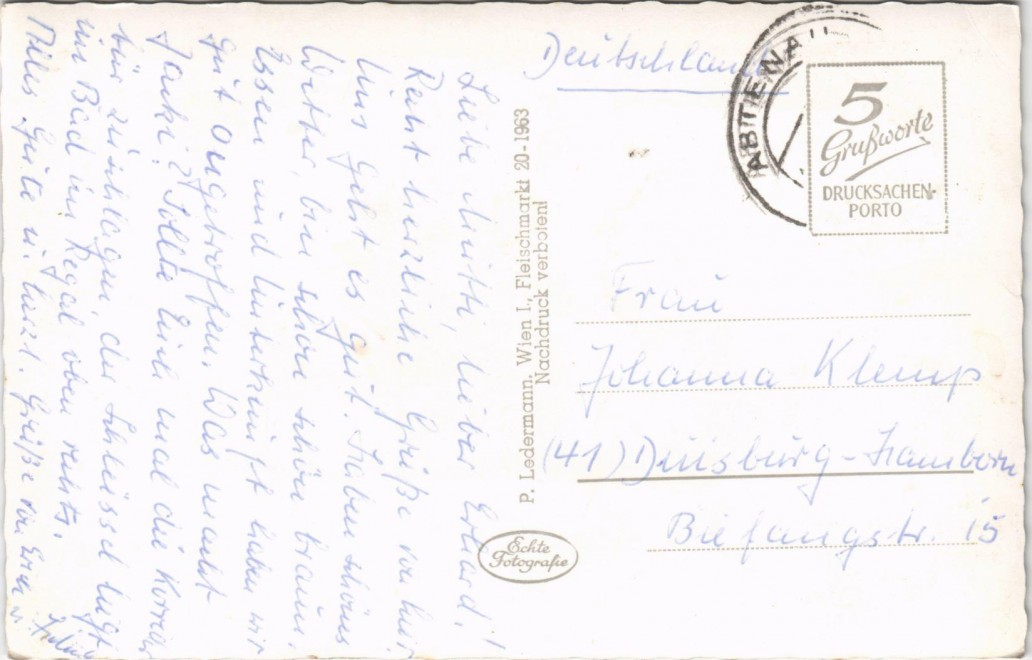 Liebe Mutti, lieber Erhard!
Recht herzliche Grüße von hier
Uns geht es gut. Haben schönes
Wetter, bin schon schön braun.
Essen und Unterkunft haben wir
gut angetroffen. Was macht
Sollte Euch mal die
der Schlüssel liegt
im Bad im Regal oben rechts.
Alles Gute u. herzl. Grüße von
P. Ledermann, Wien I., Fleischmarkt 20 - 1963
Nachdruck verboten!
Echte
Fotografie
Deutschland
ABTENAU
5
Grußworte
DRUCKSACHEN-
PORTO
Frau
Johanna Klemp
(41) Duisburg-Hamborn
Biefangstr. 15